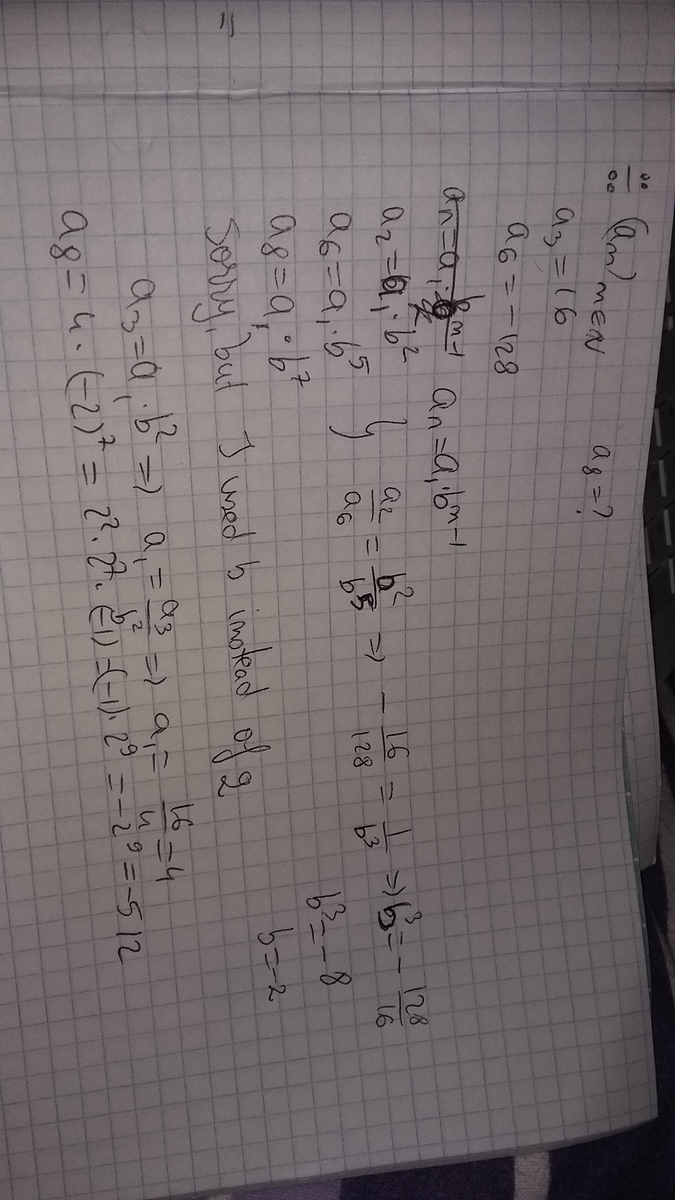 ∺ (aₙ) n∈N a₈=?
a₃=16
a₆=-128
aₙ=a₁·bⁿ⁻¹
a₂=a₁·b² } a₂/a₆ = b²/b⁵ => - 16/128 = 1/b³ => b³=- 128/16
a₆=a₁·b⁵ b³=-8
a₈=a₁·b⁷ b=-2
Sorry, but I used b instead of q
a₃=a₁·b² => a₁= a₃/b² => a₁= 16/4 =4
a₈=4·(-2)⁷=2²·2⁷·(-1)=(-1)·2⁹=-2⁹=-512